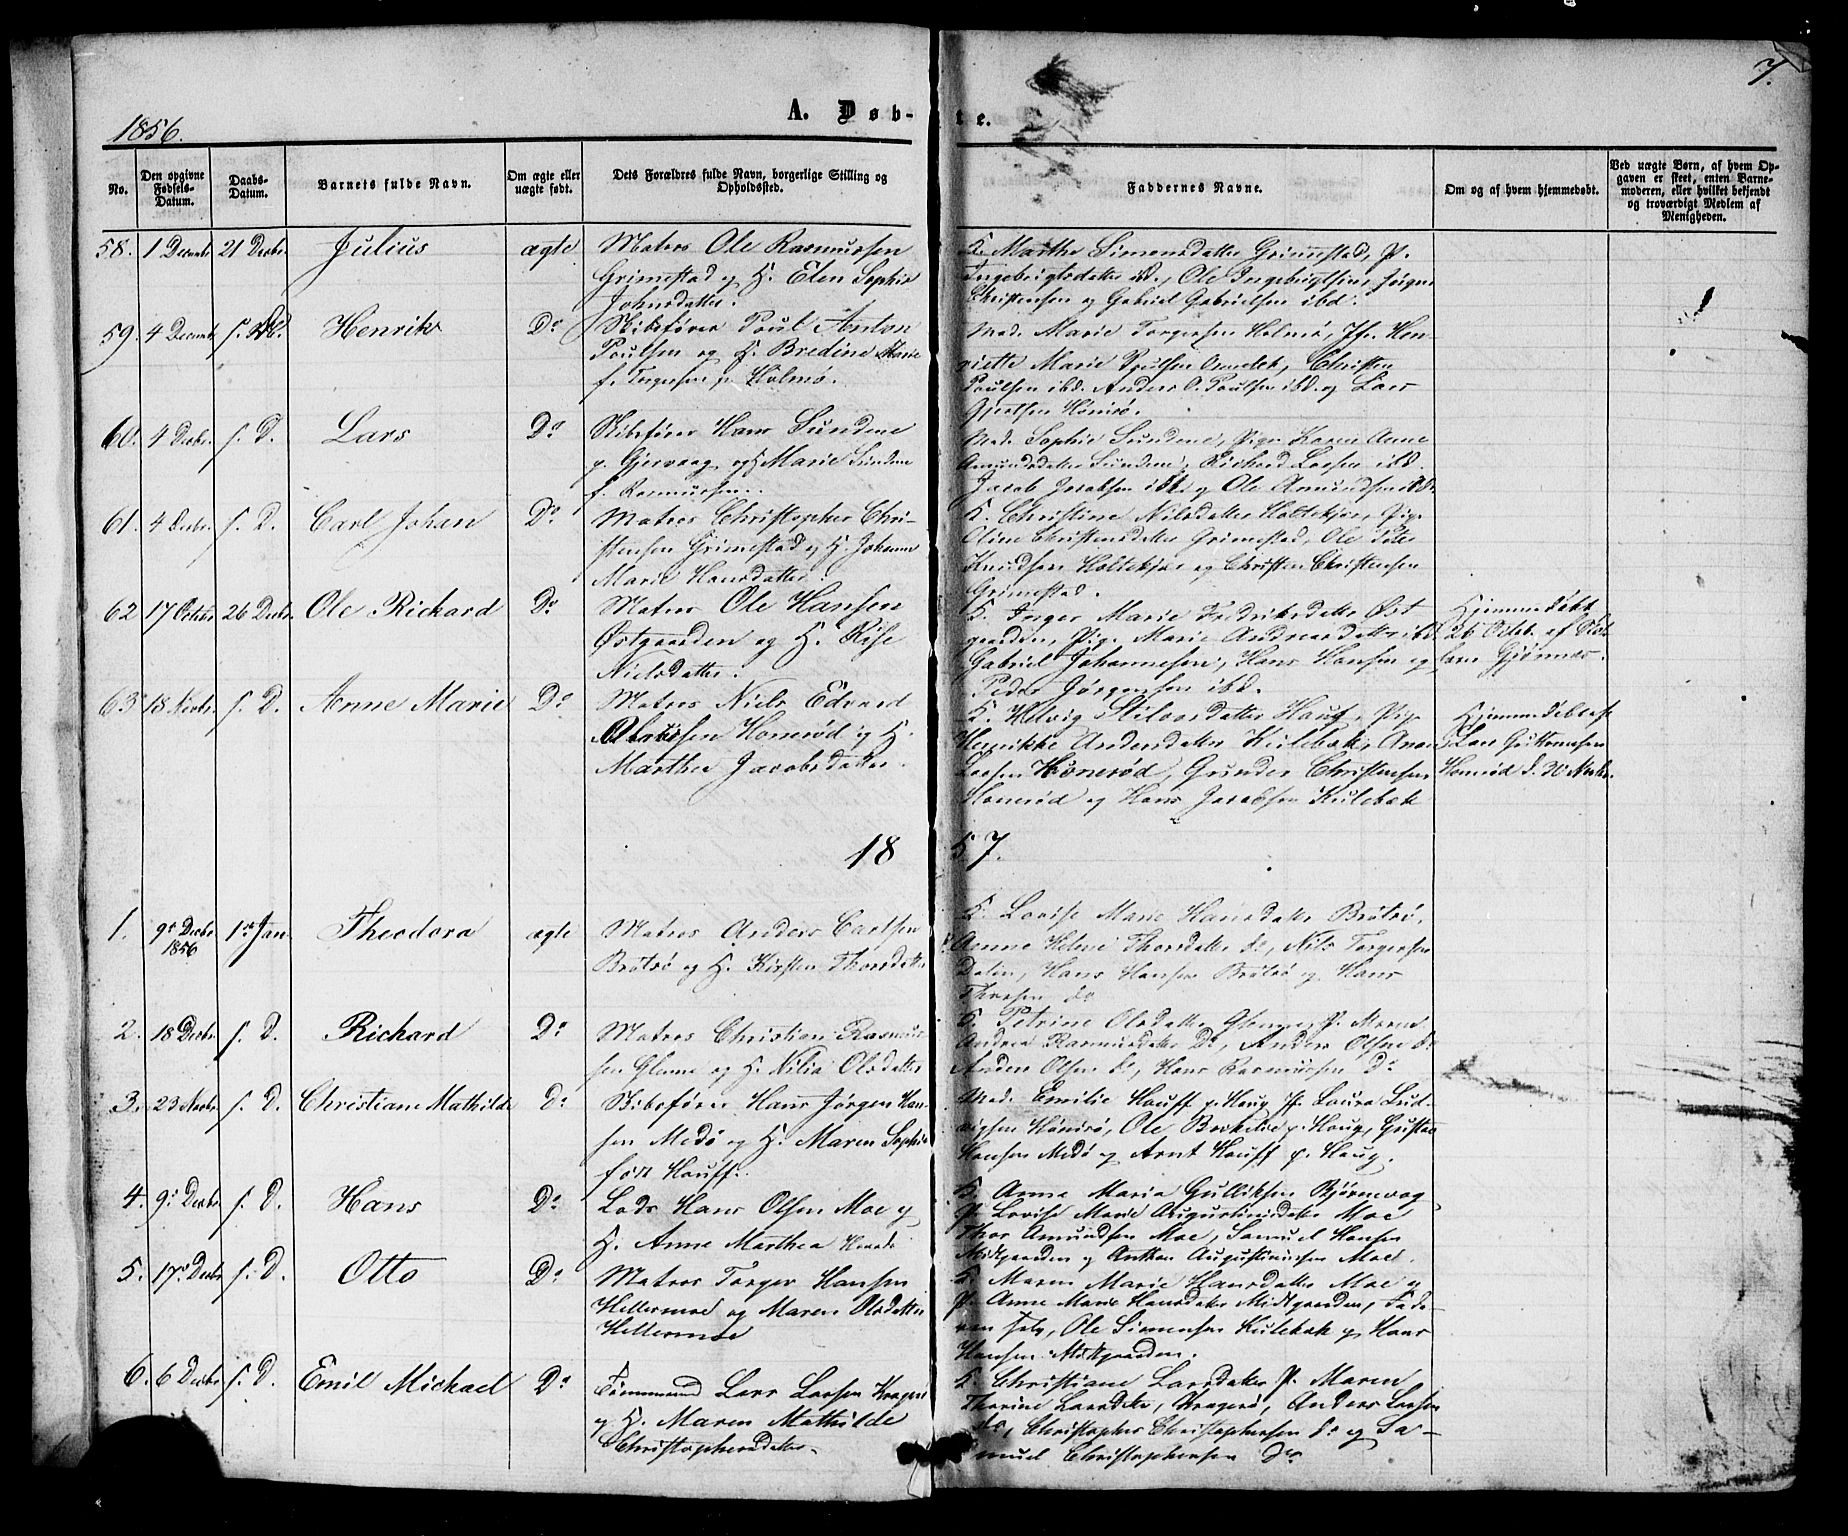 7.
1856.
A. Døb-
te.
No.
Den opgivne Fødsels-Datum.
Daabs-Datum.
Barnets fulde Navn.
Om ægte eller uægte født.
Dets Forældres fulde Navn, borgerlige Stilling og Opholdssted.
Faddernes Navne.
Om og af hvem hjemmedøbt.
Ved uægte Børn, af hvem Opgaven er skeet, enten Barnemoderen, eller hvilket bekjendt og troværdigt Medlem af Menigheden.
58. 1 Decembr 21 Decbr. Julius ægte Matros Ole Rasmussen
Grimestad og H. Elen Sophie
Johnsdatter.
K. Marthe Simensdatter Grimestad, P.
Ingebrigtsdatter ibd., Ole Ingebrigtsen, Jørgen
Christensen og Gabriel Gabrielsen ibd.
59. 4 Decembr Henrik Do Skibsfører Poul Anton
Poulsen og H. Bredine Marie
f. Torgersen p. Holmø.
Mad. Marie Torgersen Holmø, Jfr. Hen-
riette Marie Christen
Poulsen ibd. Anders O. Poulsen ibd. og Lars
Gjertsen
60. 4 Decbr. s. D. Lars Do Skibsfører Hans Sundene
p. Gjervaag og H. Marie Sundene
f. Rasmussen.
Mad. Sophie Sundene, Pige Karen Anne
Amundsdatter Sundene, Richard Larsen ibd.
Jacob Jacobsen ibd. og Ole Amundsen ibd.
61. 4 Decbr. s. D. Carl Johan Do Matros Christopher Chri-
stensen Grimestad og H. Johanne
Marie Hansdatter.
K. Christine Nilsdatter Holtekjær, Pige
Oline Christensdatter Grimestad, Ole
Knudsen Holtekjær og Christen Christensen
Grimestad.
62 17 Octbr 26 Decbr. Ole Richard Do Matros Ole Hansen
Østgaarden og H.
Nielsdatter.
K. Inger Marie Fredriksdatter Øst-
gaarden, Pige Marie Andreasdatter ibd.
Gabriel Johannesen, Hans Hansen og
Peder Jørgensen ibd.
Hjemmedøbt
26 Octb. af
63 18 Novbr. s. D. Anne Marie Do Matros Niels Edvard
Honerød og H.
Marthea Jacobsdatter.
K. Helvig Haug, Pige
Henrikke Andersdatter Kulebæk,
Larsen Hønerød, Gunder Christensen
Honerød og Hans Jacobsen Kulebæk
Hjemmedøbt af
Lars Guttormsen
Honerød d. 30 Novbr.
18
57.
1. 9de Decbr 1856 1ste Jan Theodora ægte Matros Anders Carlsen
Brøtsø og H. Kirsten Thorsdatter
K. Lovise Marie Hansdatter Brøtsø,
P. Anne Helene Thorsdatter do, Nils Torgersen
Dalen, Hans Hansen Brøtsø og Hans
Thorsen do
2. 18 Decbr. s. D. Richard Do Matros Christian Rasmus-
sen Glenne og H. Nilia Olsdatter
K. Petrine Olsdatter Glenne, P. Maren
Andrea Rasmusdatter Do, Anders Olsen do
Anders Olsen do, Hans Rasmussen Do
3. 23 Novbr. s. D. Christiane Mathilde Do Skibsfører Hans Jørgen Han-
sen Medø og H. Maren Sophie
født Hauff.
Mad. Emilie Hauff p. Haug P. Laura Lud-
vigsen Hønerø, Ole p. Haug, Gustav
Hansen Medø og Arnt Hauff p. Haug.
4. 9de Decbr. s. D. Hans Do Lods Hans Olsen Moe og
H. Anne Marthea
K. Anne Maria Gulliksen Bjørnevaag
P. Lovise Marie Augustinusdatter Moe
Thor Amundsen Moe, Samuel Hansen
Midtgaarden og Anthon Augustinussen Moe.
5. 17de Decbr s. D. Otto Do Matros Torger Hansen
Hellermoe og Maren Olsdatter
Hellermoe
K. Maren Marie Hansdatter Moe og
P. Anne Marie Hansdatter Midtgaarden, Fade-
ren selv, Ole Simensen Kulebæk og Hans
Hansen Midtgaarden.
6. 6 Decbr s. D. Emil Michael Do Tømmermand Lars Larsen Kragerø
og H. Maren Mathilde
Christophersdatter
K. Christiane Larsdatter P. Maren
Thorine Larsdatter, Kragerø, Anders Larsen
do, Christopher Christophersen do og Sa-
muel Christophersen Do